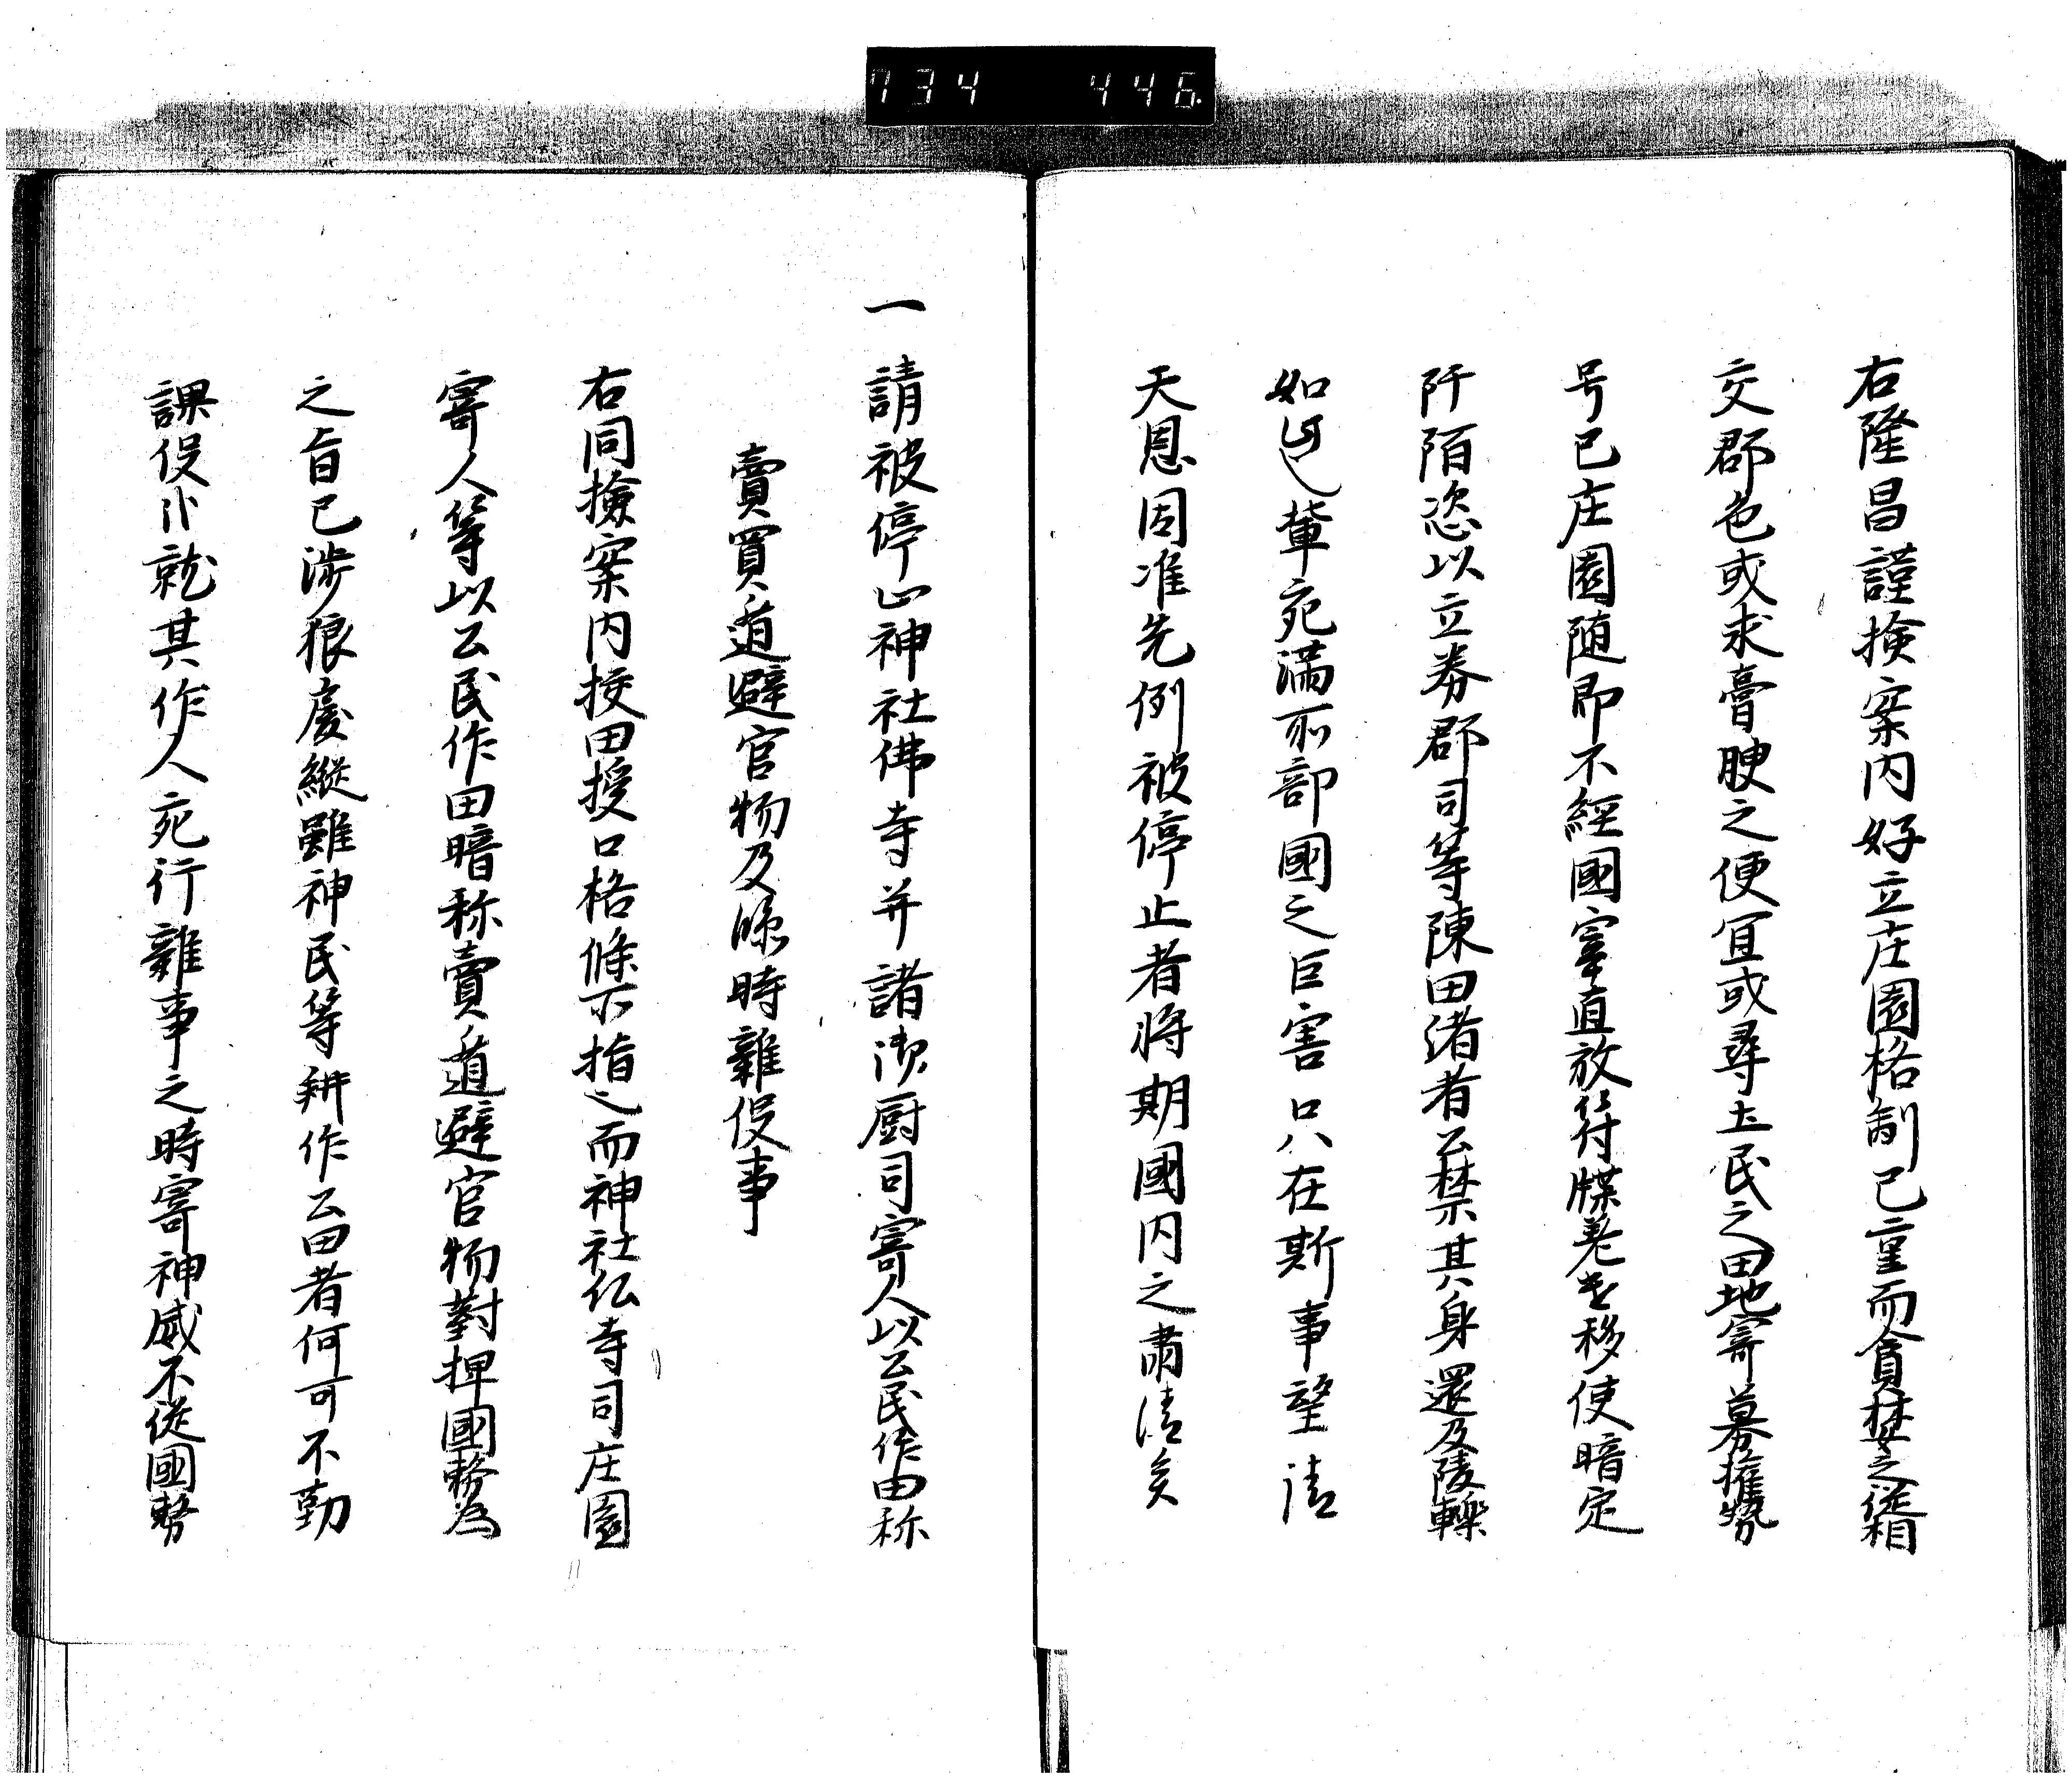 734 446
右隆昌謹撿案内好立庄園格制已重而貪婪之徒相
交郡邑或求膏腴之便宜或尋土民之田地寄募權勢
号已庄園随即不經國宰直放符牒差遣移使暗定
阡陌恣以立券郡司等陳田渚者公禁其身還及陵轢
如此之輩宛満所部國之巨害只在斯事望請
天恩因准先例被停止者将期國内之肅清矣
一請被停止神社佛寺并諸御厨司寄人以公民作田称
賣買遁避官物及臨時雜役事
右同撿案内挍田授口格條所指也而神社仏寺司庄園
寄人等以公民作田暗称賣買遁避官物對捍國務為
之旨已涉狼戾縦雖神民等耕作公田者何可不勤
課役仍就其作人宛行雜事之時寄神威不從國務